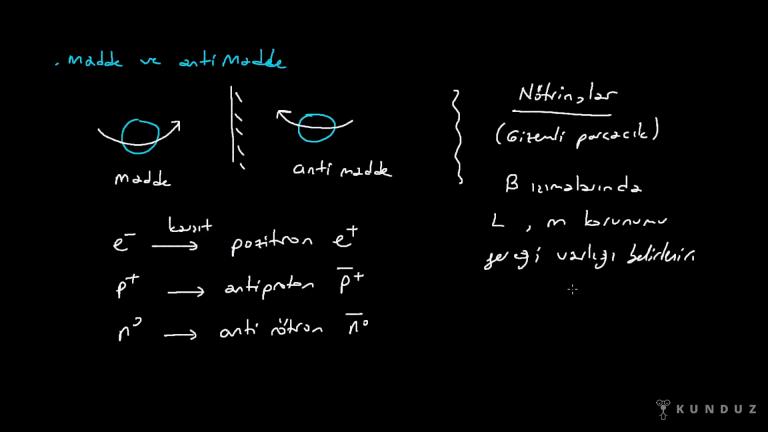 . Madde ve anti Madde
madde
anti madde
e⁻ karşıt → pozitron e⁺
p⁺ → antiproton p̅⁺
n⁰ → anti nötron n̅⁰
Nötrinolar
(Gizemli parçacık)
B ışımalarında
L , m korunumu
gereği varlığı belirlenir
KUNDUZ